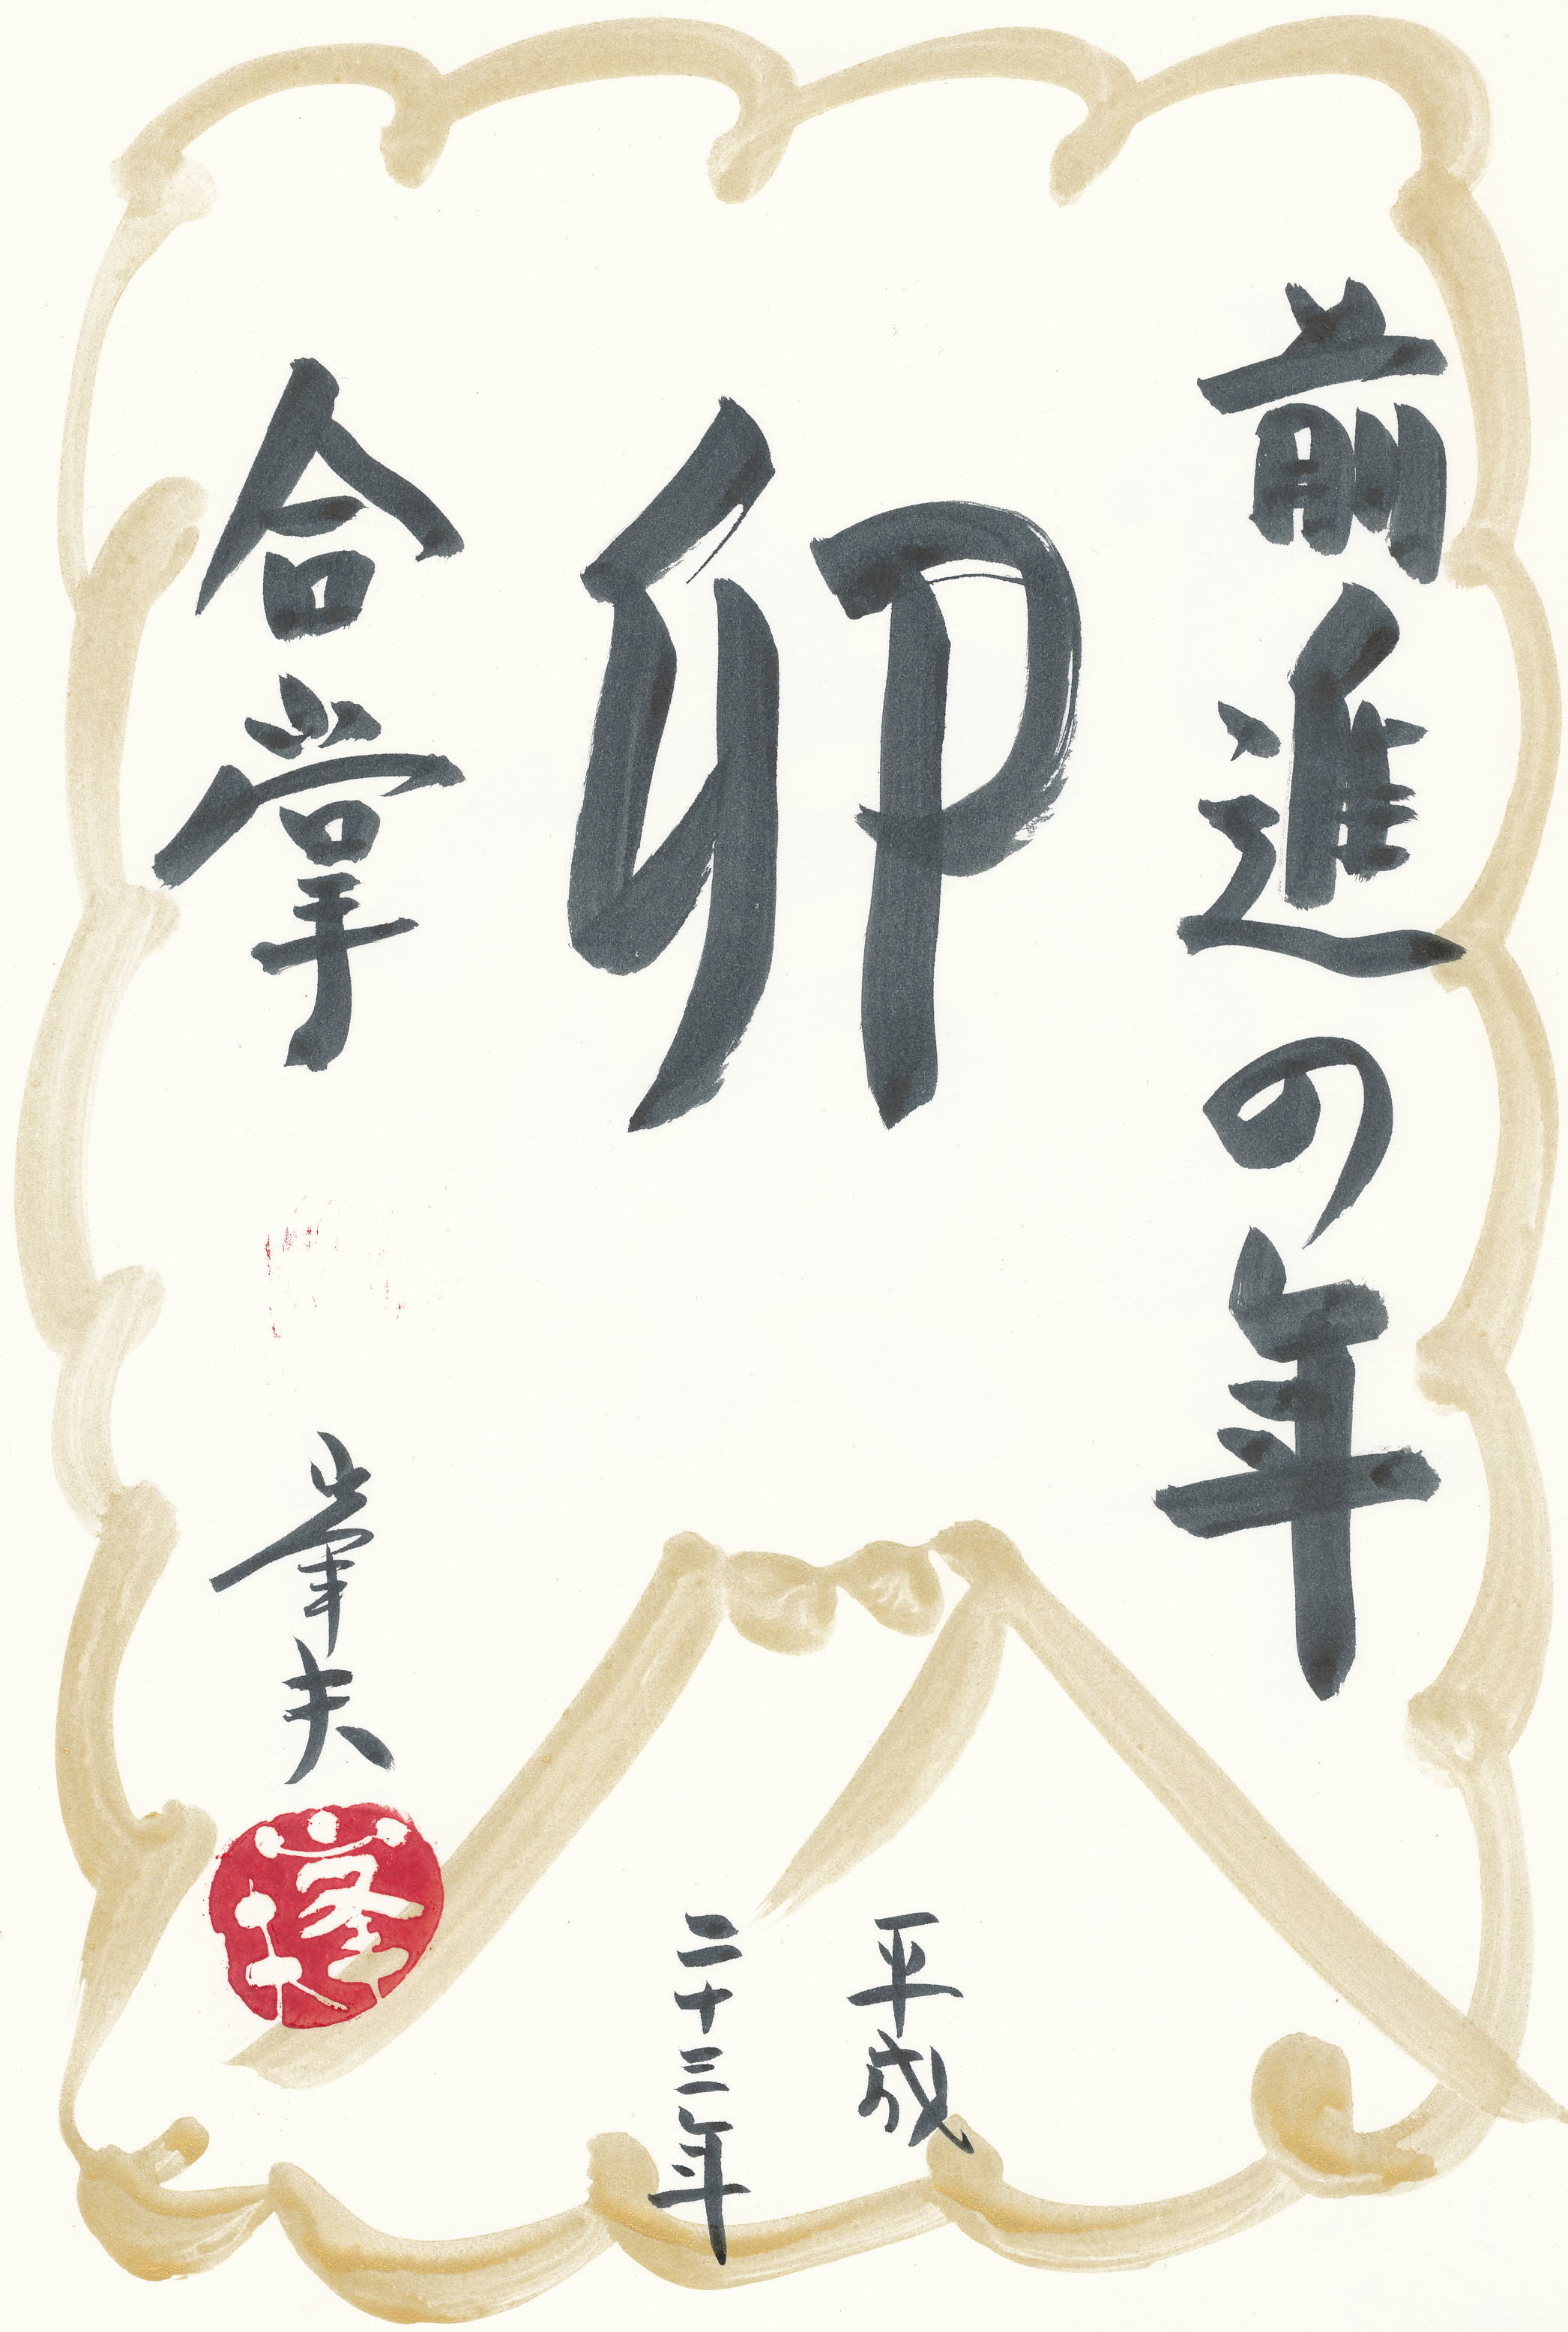 前進の年
卯
合掌
峯夫
平成
二十三年